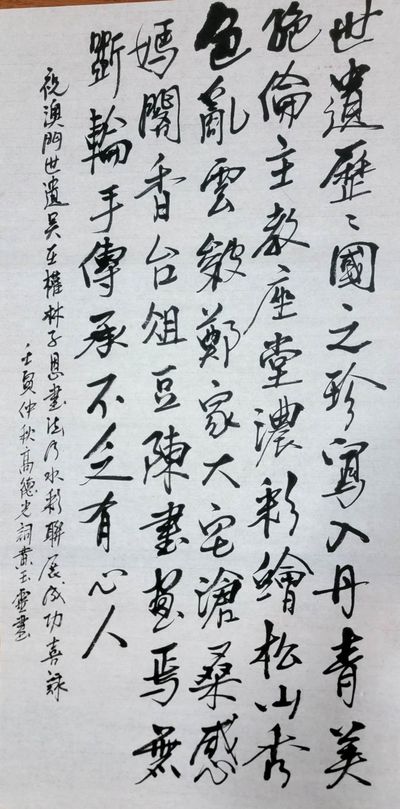 世遺歷〻國之珍寫入丹青美
絕倫主教座堂濃彩繪松山秀
色亂雲皴鄭家大宅滄桑感
媽閣香台俎豆陳書畫焉無
斲輪手傳承不乏有心人
祝澳門世遺吳在權林子恩書法及水彩聯展成功喜詠
壬寅仲秋高德光詞黃玉靈書